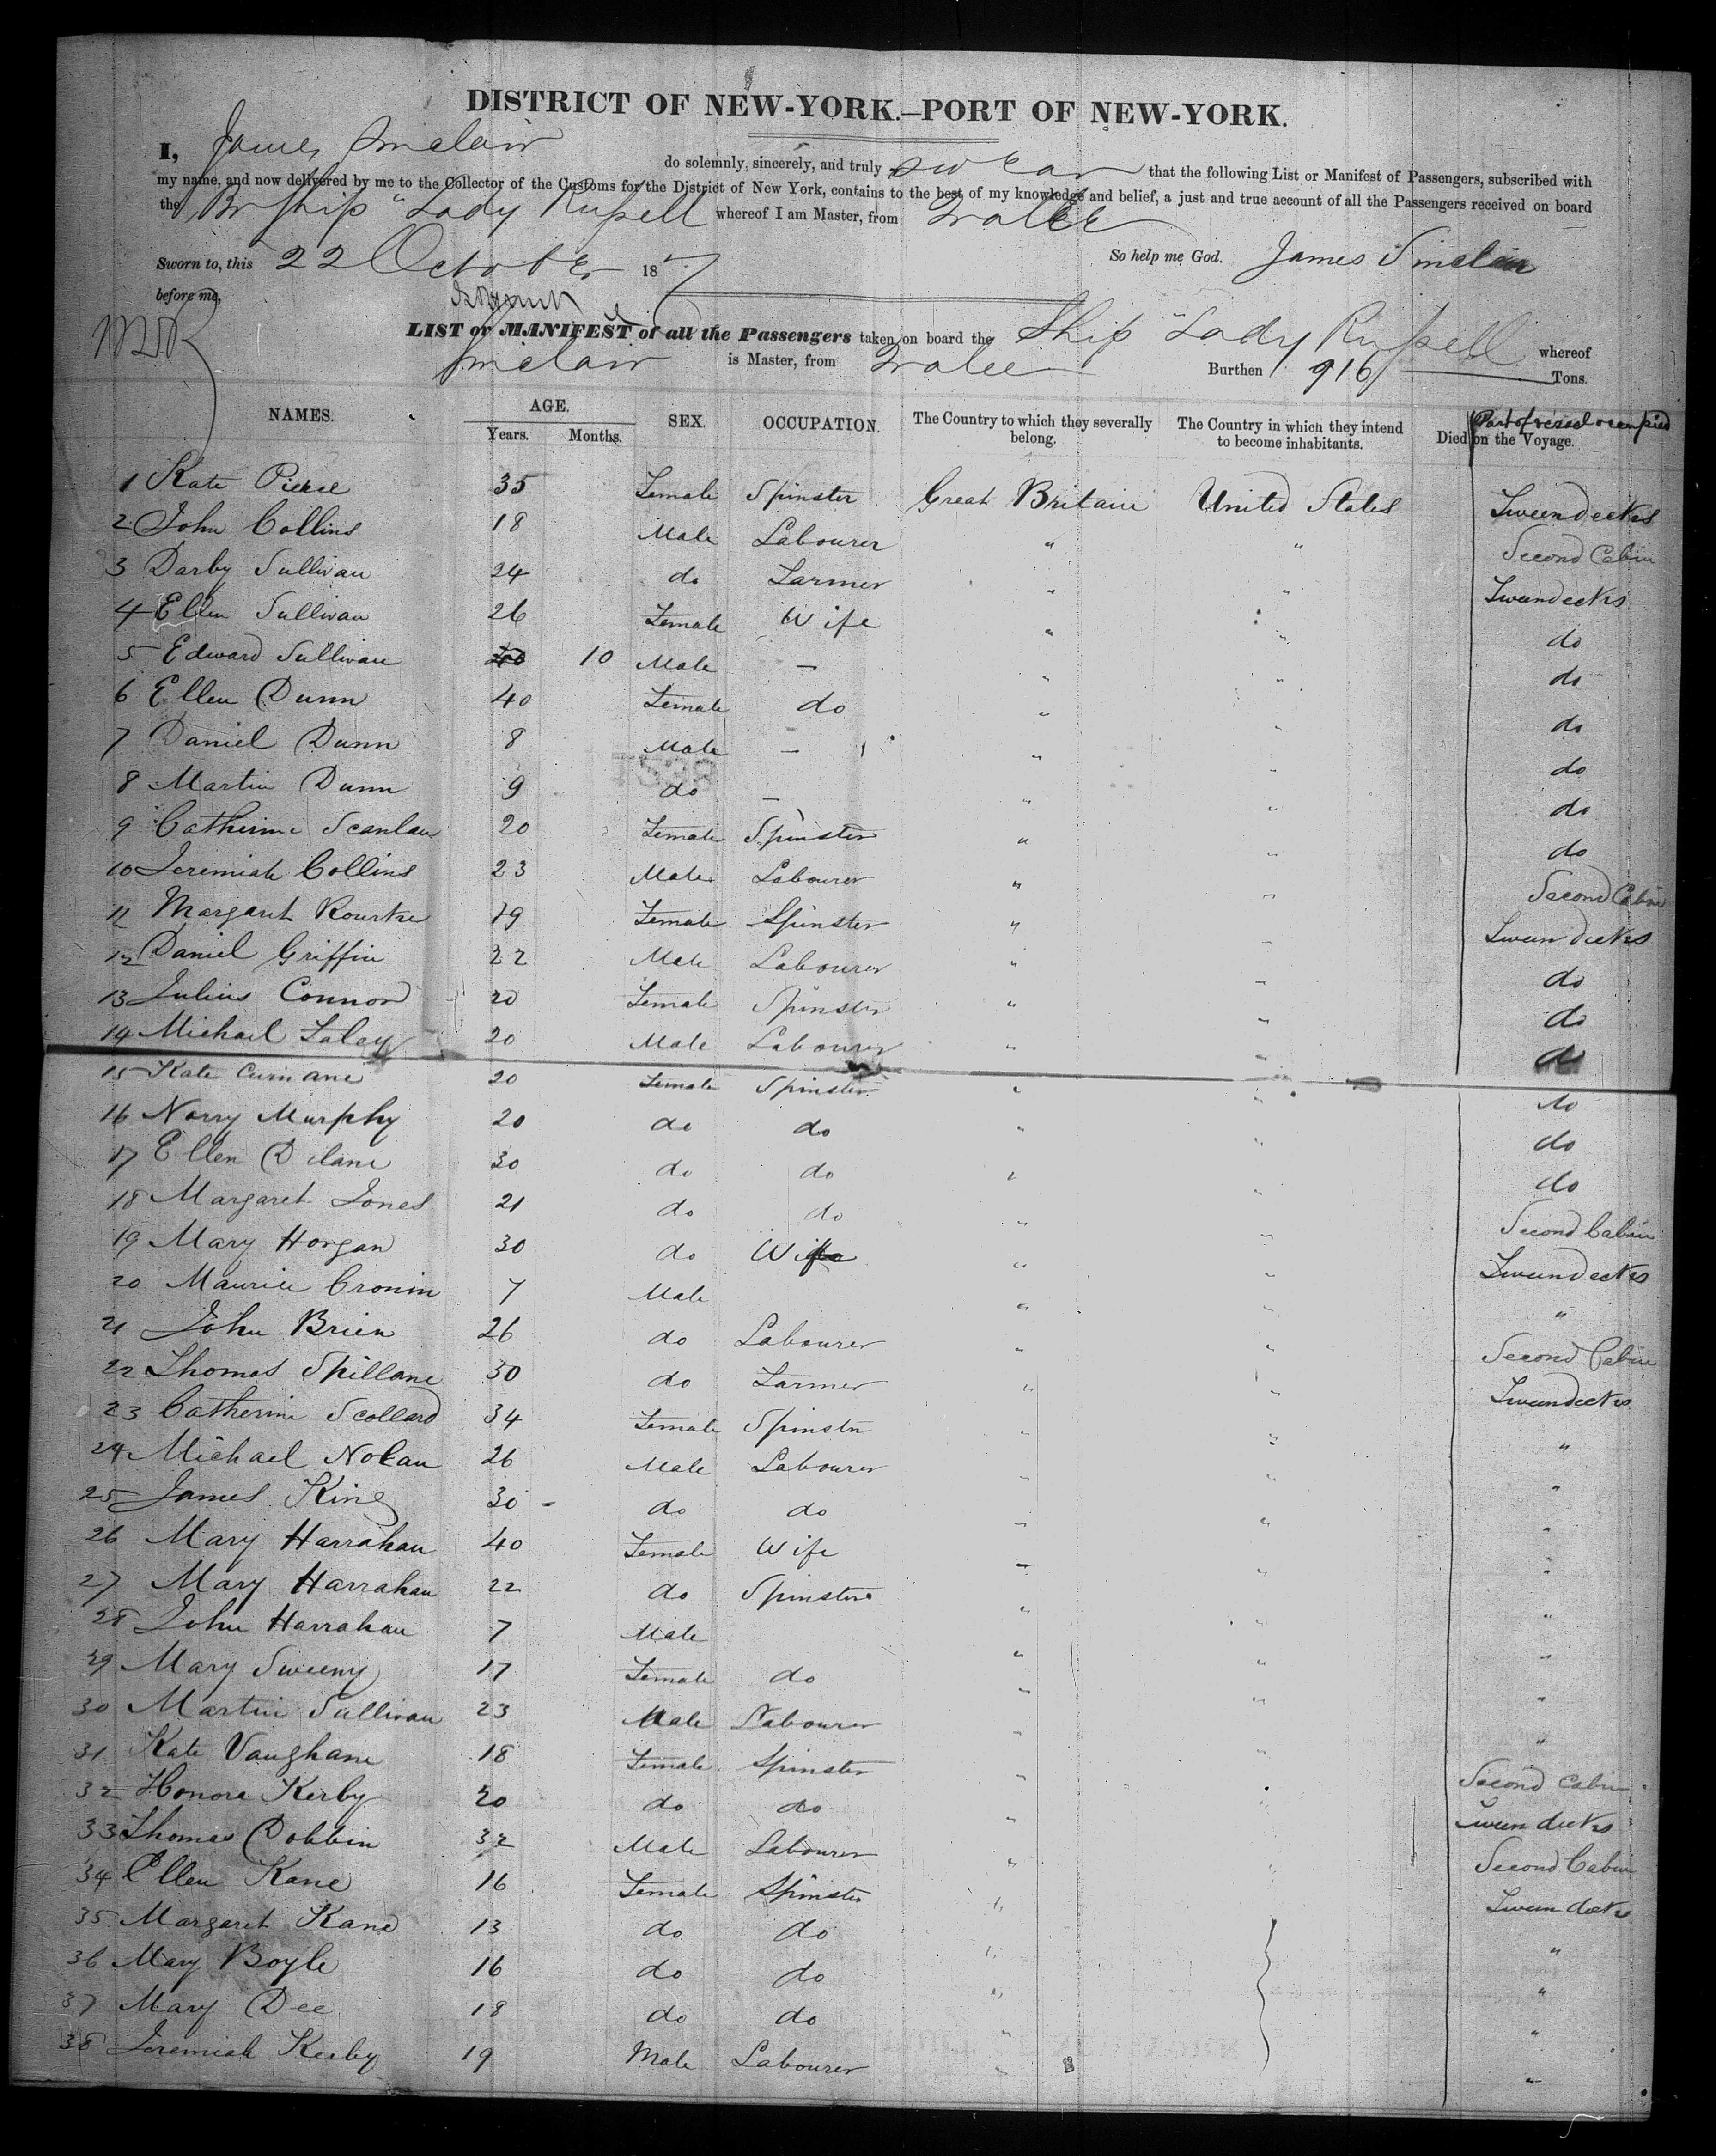 DISTRICT OF NEW-YORK.—PORT OF NEW-YORK.
I, James Sinclair do solemnly, sincerely, and truly swear that the following List or Manifest of Passengers, subscribed with
my name, and now delivered by me to the Collector of the Customs for the District of New York, contains to the best of my knowledge and belief, a just and true account of all the Passengers received on board
the Br Ship "Lady Russell whereof I am Master, from Tralee
Sworn to, this 22 October 187 So help me God. James Sinclair
before me,
LIST or MANIFEST of all the Passengers taken on board the Ship "Lady Russell whereof
Sinclair is Master, from Tralee Burthen 916 Tons.
NAMES. AGE. Years. Months. SEX. OCCUPATION. The Country to which they severally belong. The Country in which they intend to become inhabitants. Died on the Voyage. Part of vessel occupied
1 Kate Pierse 35 Female Spinster Great Britain United States Tweendecks
2 John Collins 18 Male Labourer " " Second Cabin
3 Darby Sullivan 24 do Farmer " " Tweendecks
4 Ellen Sullivan 26 Female Wife " " do
5 Edward Sullivan 10 Male — " " do
6 Ellen Dunn 40 Female do " " do
7 Daniel Dunn 8 Male — " " do
8 Martin Dunn 9 do — " " do
9 Catherine Scanlan 20 Female Spinster " " do
10 Jeremiah Collins 23 Male Labourer " " Second Cabin
11 Margaret Rourke 19 Female Spinster " " Tweendecks
12 Daniel Griffin 22 Male Labourer " " do
13 Julius Connor 20 Female Spinster " " do
14 Michael Foley 20 Male Labourer " " do
15 Kate Curnane 20 Female Spinster " " do
16 Norry Murphy 20 do do " " do
17 Ellen Dilane 30 do do " " do
18 Margaret Jones 21 do do " " Second Cabin
19 Mary Horgan 30 do Wife " " Tweendecks
20 Maurice Cronin 7 Male " " "
21 John Brien 26 do Labourer " " Second Cabin
22 Thomas Spillane 30 do Farmer " " Tweendecks
23 Catherine Scollard 34 Female Spinster " " "
24 Michael Nolan 26 Male Labourer " " "
25 James King 30 do do " " "
26 Mary Harrahan 40 Female Wife " " "
27 Mary Harrahan 22 do Spinster " " "
28 John Harrahan 7 Male " " "
29 Mary Sweeny 17 Female do " " "
30 Martin Sullivan 23 Male Labourer " " "
31 Kate Vaughane 18 Female Spinster " " Second Cabin
32 Honora Kerby 20 do do " " Tween decks
33 Thomas Dobbin 32 Male Labourer " " Second Cabin
34 Ellen Kane 16 Female Spinster " Tween decks
35 Margaret Kane 13 do do " "
36 Mary Boyle 16 do do " "
37 Mary Dee 18 do do " "
38 Jeremiah Kerby 19 Male Labourer " "